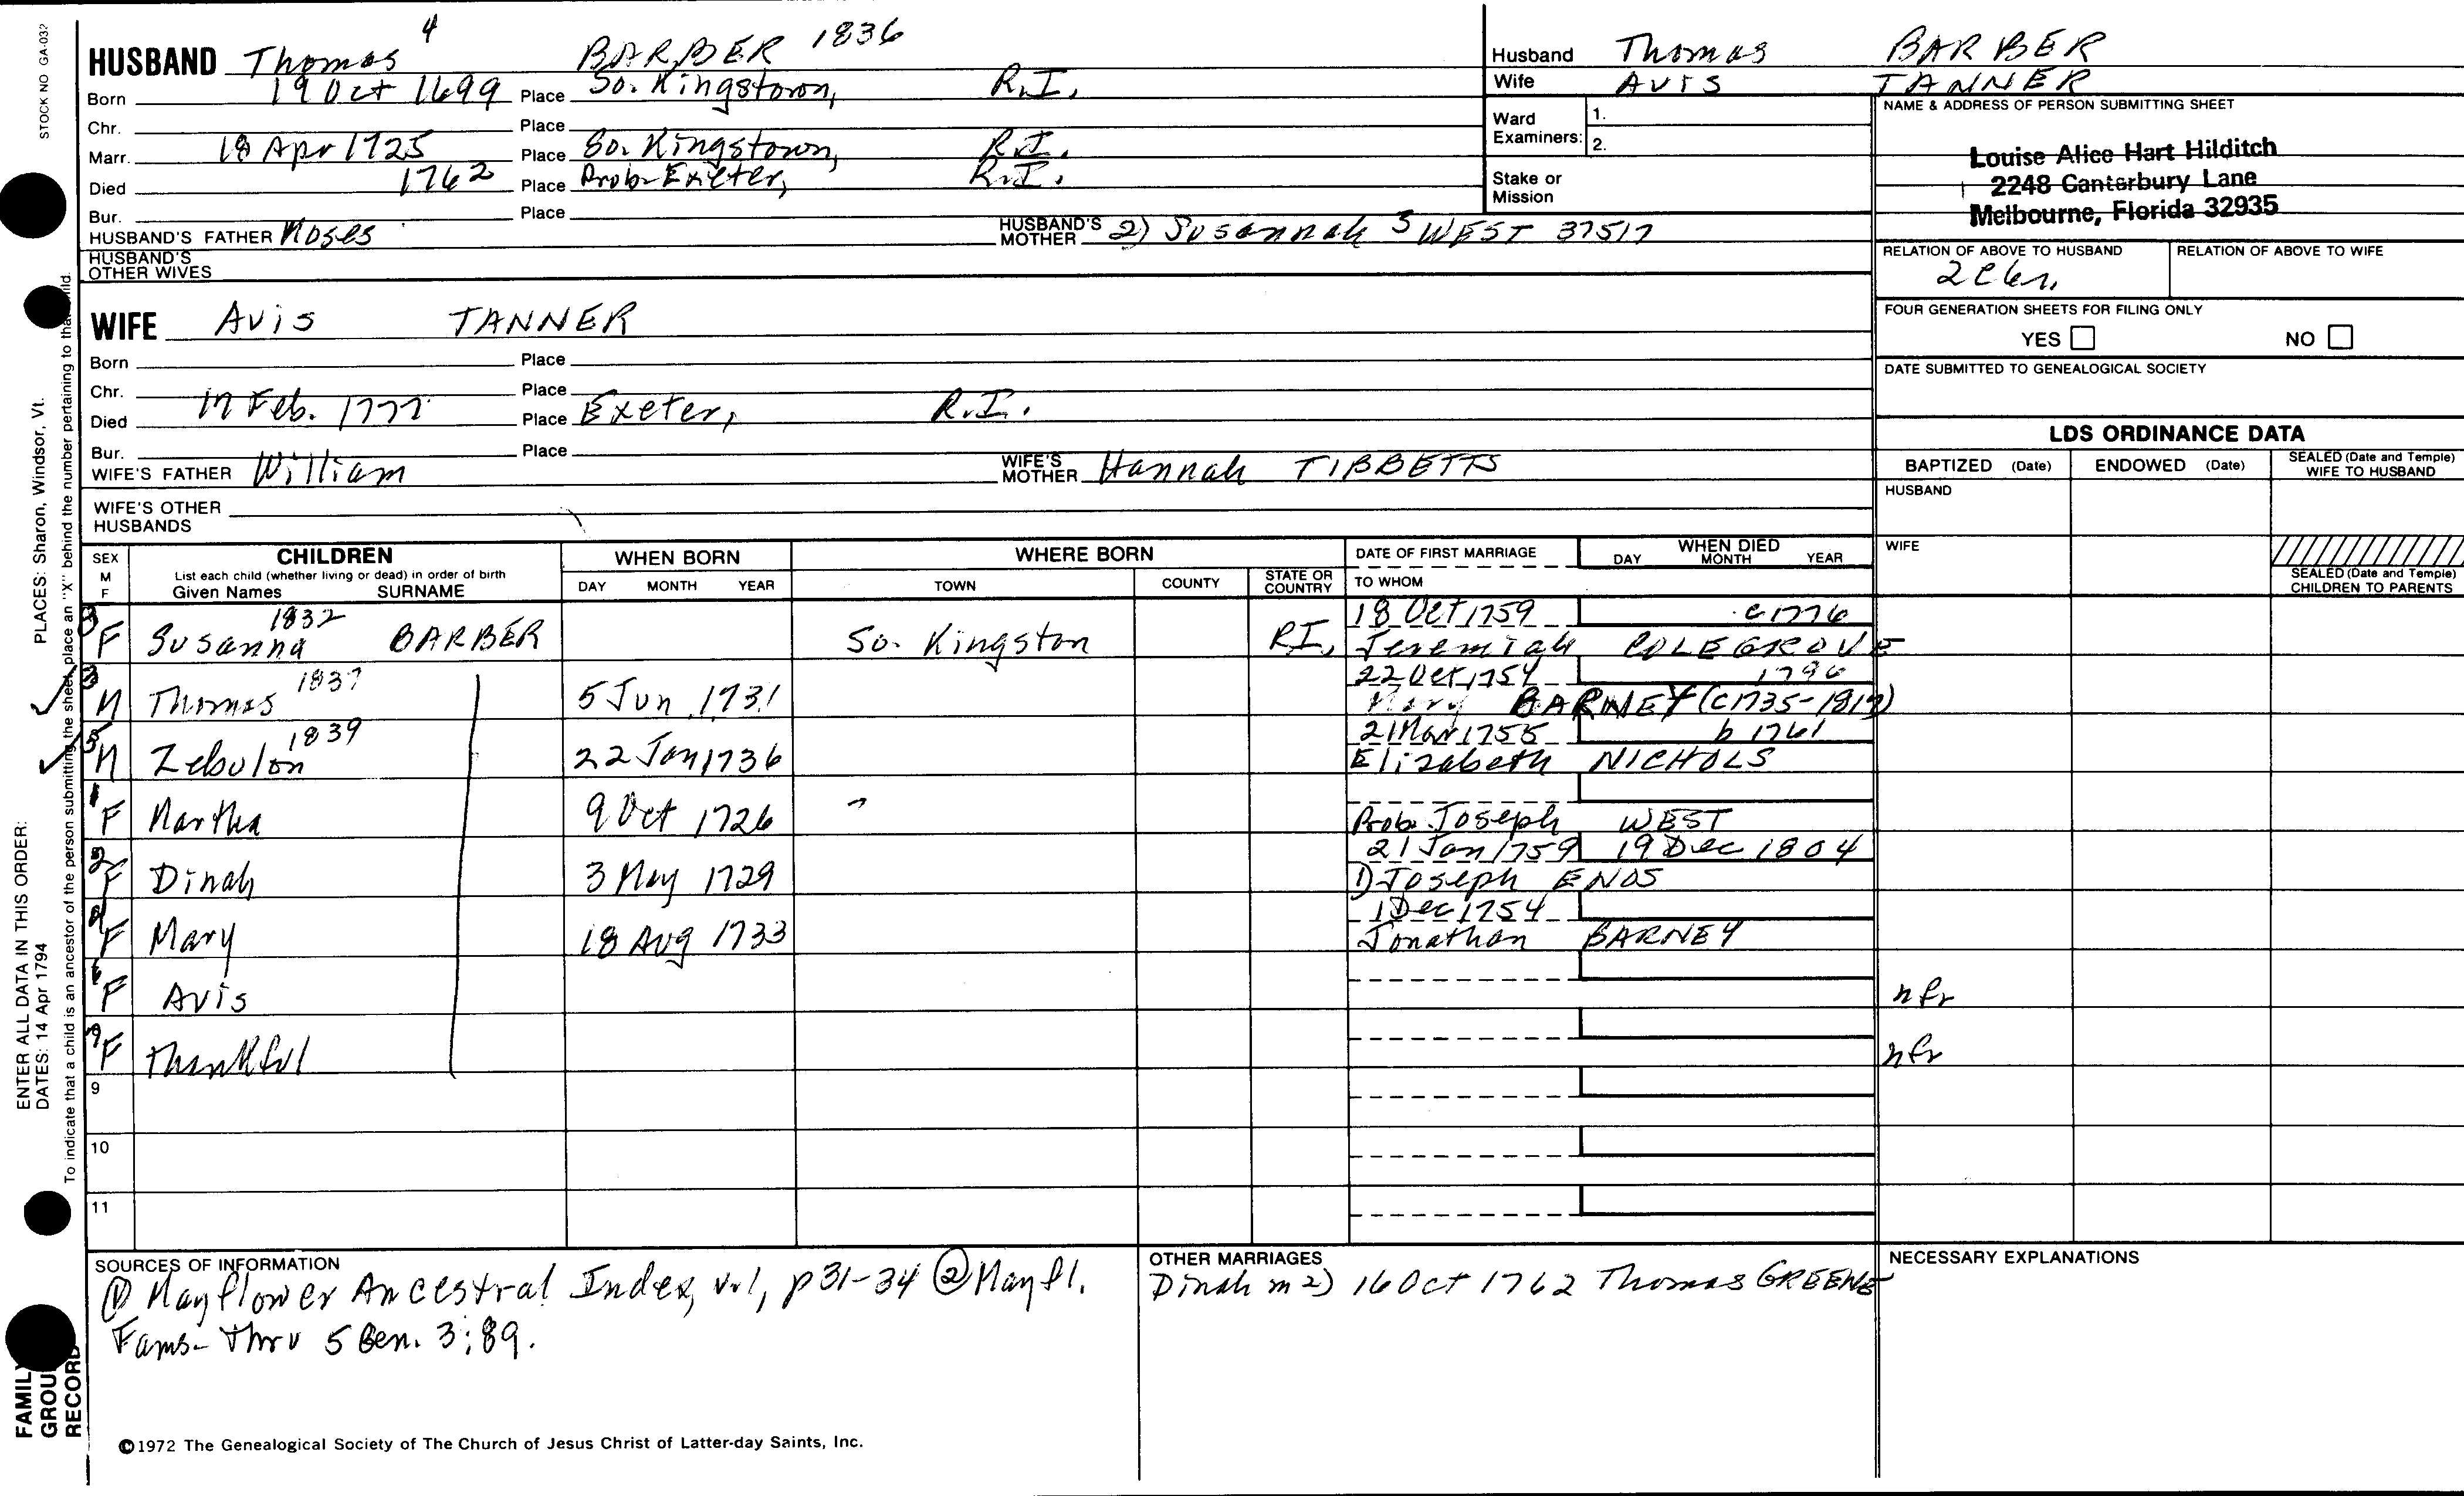 STOCK NO GA-032
HUSBAND Thomas 4 BARBER 1836
Born 19 Oct 1699 Place So. Kingstown, R.I.
Chr. Place
Marr. 18 Apr 1725 Place So. Kingstown, R.I.
Died 1762 Place Prob. Exeter, R.I.
Bur. Place
HUSBAND'S FATHER Moses HUSBAND'S MOTHER 2) Susannah 5 WEST 37517
HUSBAND'S OTHER WIVES
WIFE Avis TANNER
Born Place
Chr. Place
Died 17 Feb. 1777 Place Exeter, R.I.
Bur. Place
WIFE'S FATHER William WIFE'S MOTHER Hannah TIBBETTS
WIFE'S OTHER HUSBANDS
Husband Thomas BARBER
Wife Avis TANNER
Ward Examiners: 1.
2.
Stake or Mission
NAME & ADDRESS OF PERSON SUBMITTING SHEET
Louise Alice Hart Hilditch
2248 Canterbury Lane
Melbourne, Florida 32935
RELATION OF ABOVE TO HUSBAND RELATION OF ABOVE TO WIFE
FOUR GENERATION SHEETS FOR FILING ONLY
YES NO
DATE SUBMITTED TO GENEALOGICAL SOCIETY
LDS ORDINANCE DATA
BAPTIZED (Date) ENDOWED (Date) SEALED (Date and Temple) WIFE TO HUSBAND
HUSBAND
WIFE
SEALED (Date and Temple) CHILDREN TO PARENTS
SEX M F CHILDREN WHEN BORN WHERE BORN DATE OF FIRST MARRIAGE WHEN DIED
List each child (whether living or dead) in order of birth DAY MONTH YEAR TOWN COUNTY STATE OR COUNTRY TO WHOM DAY MONTH YEAR
Given Names SURNAME
1832 18 Oct 1759 c1776
F Susanna BARBER So. Kingston RI, Jeremiah COLEGROVE
3 1837 22 Oct 1754 1796
M Thomas 5 Jun 1731 Mary BARNEY (c1735-1817)
5 1839 21 Mar 1755 b 1761
M Zebulon 22 Jan 1736 Elizabeth NICHOLS
1
F Martha 9 Oct 1726 Prob. Joseph WEST
2 21 Jan 1759 19 Dec 1804
F Dinah 3 May 1729 1) Joseph ENOS
4 1 Dec 1754
F Mary 18 Aug 1733 Jonathan BARNEY
6
F Avis nfr
F Thankful nfr
9
10
11
SOURCES OF INFORMATION
① Mayflower Ancestral Index, v.1, p 31-34 ② Mayfl.
Fams- Thru 5 Gen. 3:89.
OTHER MARRIAGES
Dinah m 2) 16 Oct 1762 Thomas GREENE
NECESSARY EXPLANATIONS
©1972 The Genealogical Society of The Church of Jesus Christ of Latter-day Saints, Inc.
PLACES: Sharon, Windsor, Vt.
ENTER ALL DATA IN THIS ORDER:
DATES: 14 Apr 1794
To indicate that a child is an ancestor of the person submitting the sheet, place an "X" behind the number pertaining to that child.
FAMILY GROUP RECORD